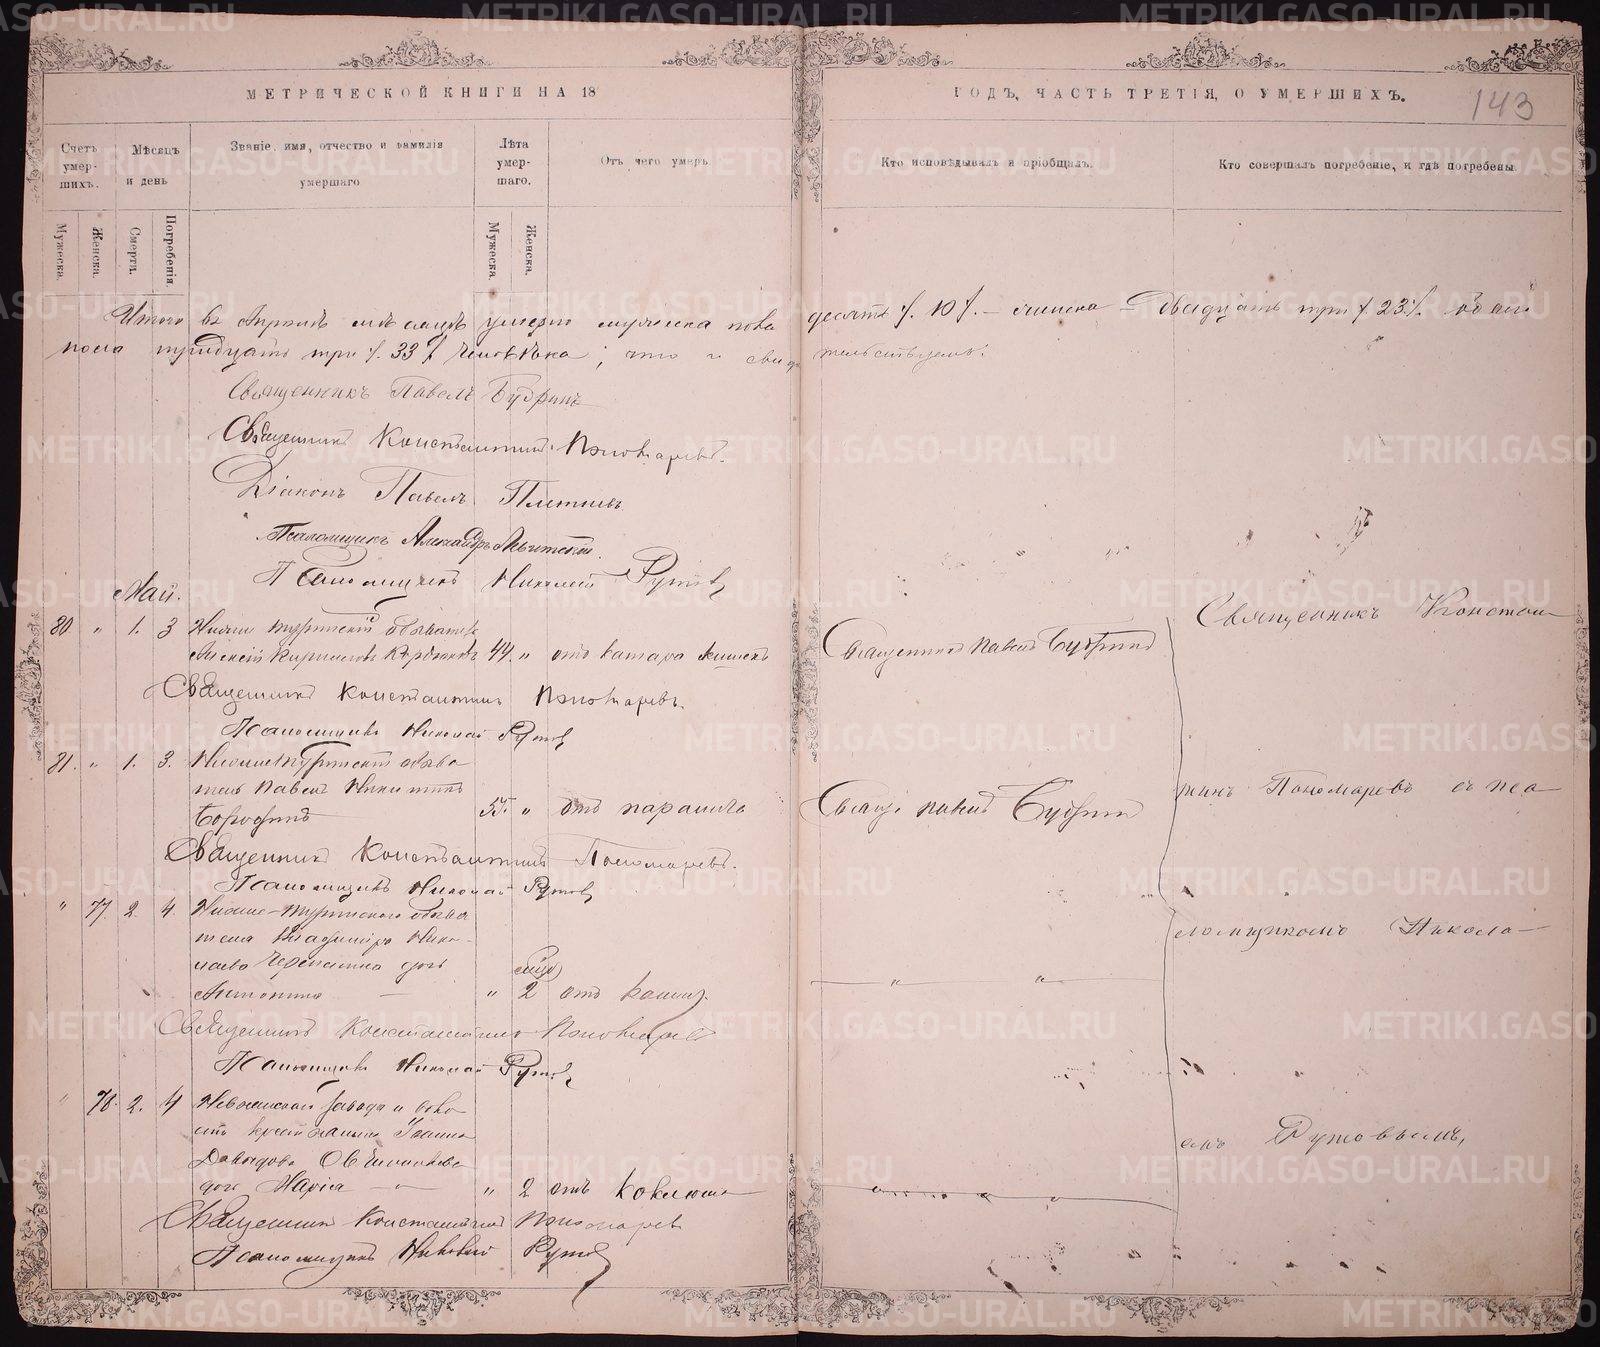 МЕТРИЧЕСКОЙ КНИГИ НА 18
ГОДЪ, ЧАСТЬ ТРЕТІЯ, О УМЕРШИХЪ.
143
Счетъ умер-шихъ.
Мѣсяцъ и день
Званіе, имя, отчество и фамилія умершаго
Лѣта умер-шаго.
Отъ чего умеръ
Кто исповѣдывалъ и пріобщалъ.
Кто совершалъ погребеніе, и гдѣ погребены
Мужеска.
Женска.
Смерти.
Погребенія
Мужеска
Женска.
Итого въ Апрѣлѣ мѣсяцѣ умерло мужеска пола десять /. 10 /. — женска — двадцать три /. 23 /. обоего
пола тридцать три /. 33 /. человѣка; что и свидѣтельствуемъ.
Священникъ Павелъ Будринъ
Священникъ Константинъ Пономаревъ.
Діаконъ Павелъ Плетневъ
Псаломщикъ Александръ
Псаломщикъ Николай Рутовъ
Май.
80 " 1. 3 Нижне туринскій обыватель
Алексій Кирилловъ 44. " отъ катара кишекъ
Священникъ Павелъ Будринъ
Священникъ Констан-
Священникъ Константинъ Пономаревъ.
Псаломщикъ Николай Рутовъ
81. " 1. 3. Нижнетуринскій обыва-
тель Павелъ Никитинъ
Бородинъ 55. " отъ паралича
Свящ. Павелъ Будринъ
тинъ Пономаревъ съ пса-
Священникъ Константинъ Пономаревъ.
Псаломщикъ Николай Рутовъ
" 77 2. 4. Нижне-туринскаго обыва-
теля Владиміра Нико-
лаева дочь
Антонина — " 2 отъ кашля
ломщикомъ Никола-
Священникъ Константинъ Пономаревъ
Псаломщикъ Николай Рутовъ
" 78. 2. 4 завода
крестьянина Іоанна
Давыдова
дочь Марія — " 2 отъ коклюша
емъ Рутовымъ,
Священникъ Константинъ Пономаревъ
Псаломщикъ Николай Рутовъ
METRIKI.GASO-URAL.RU